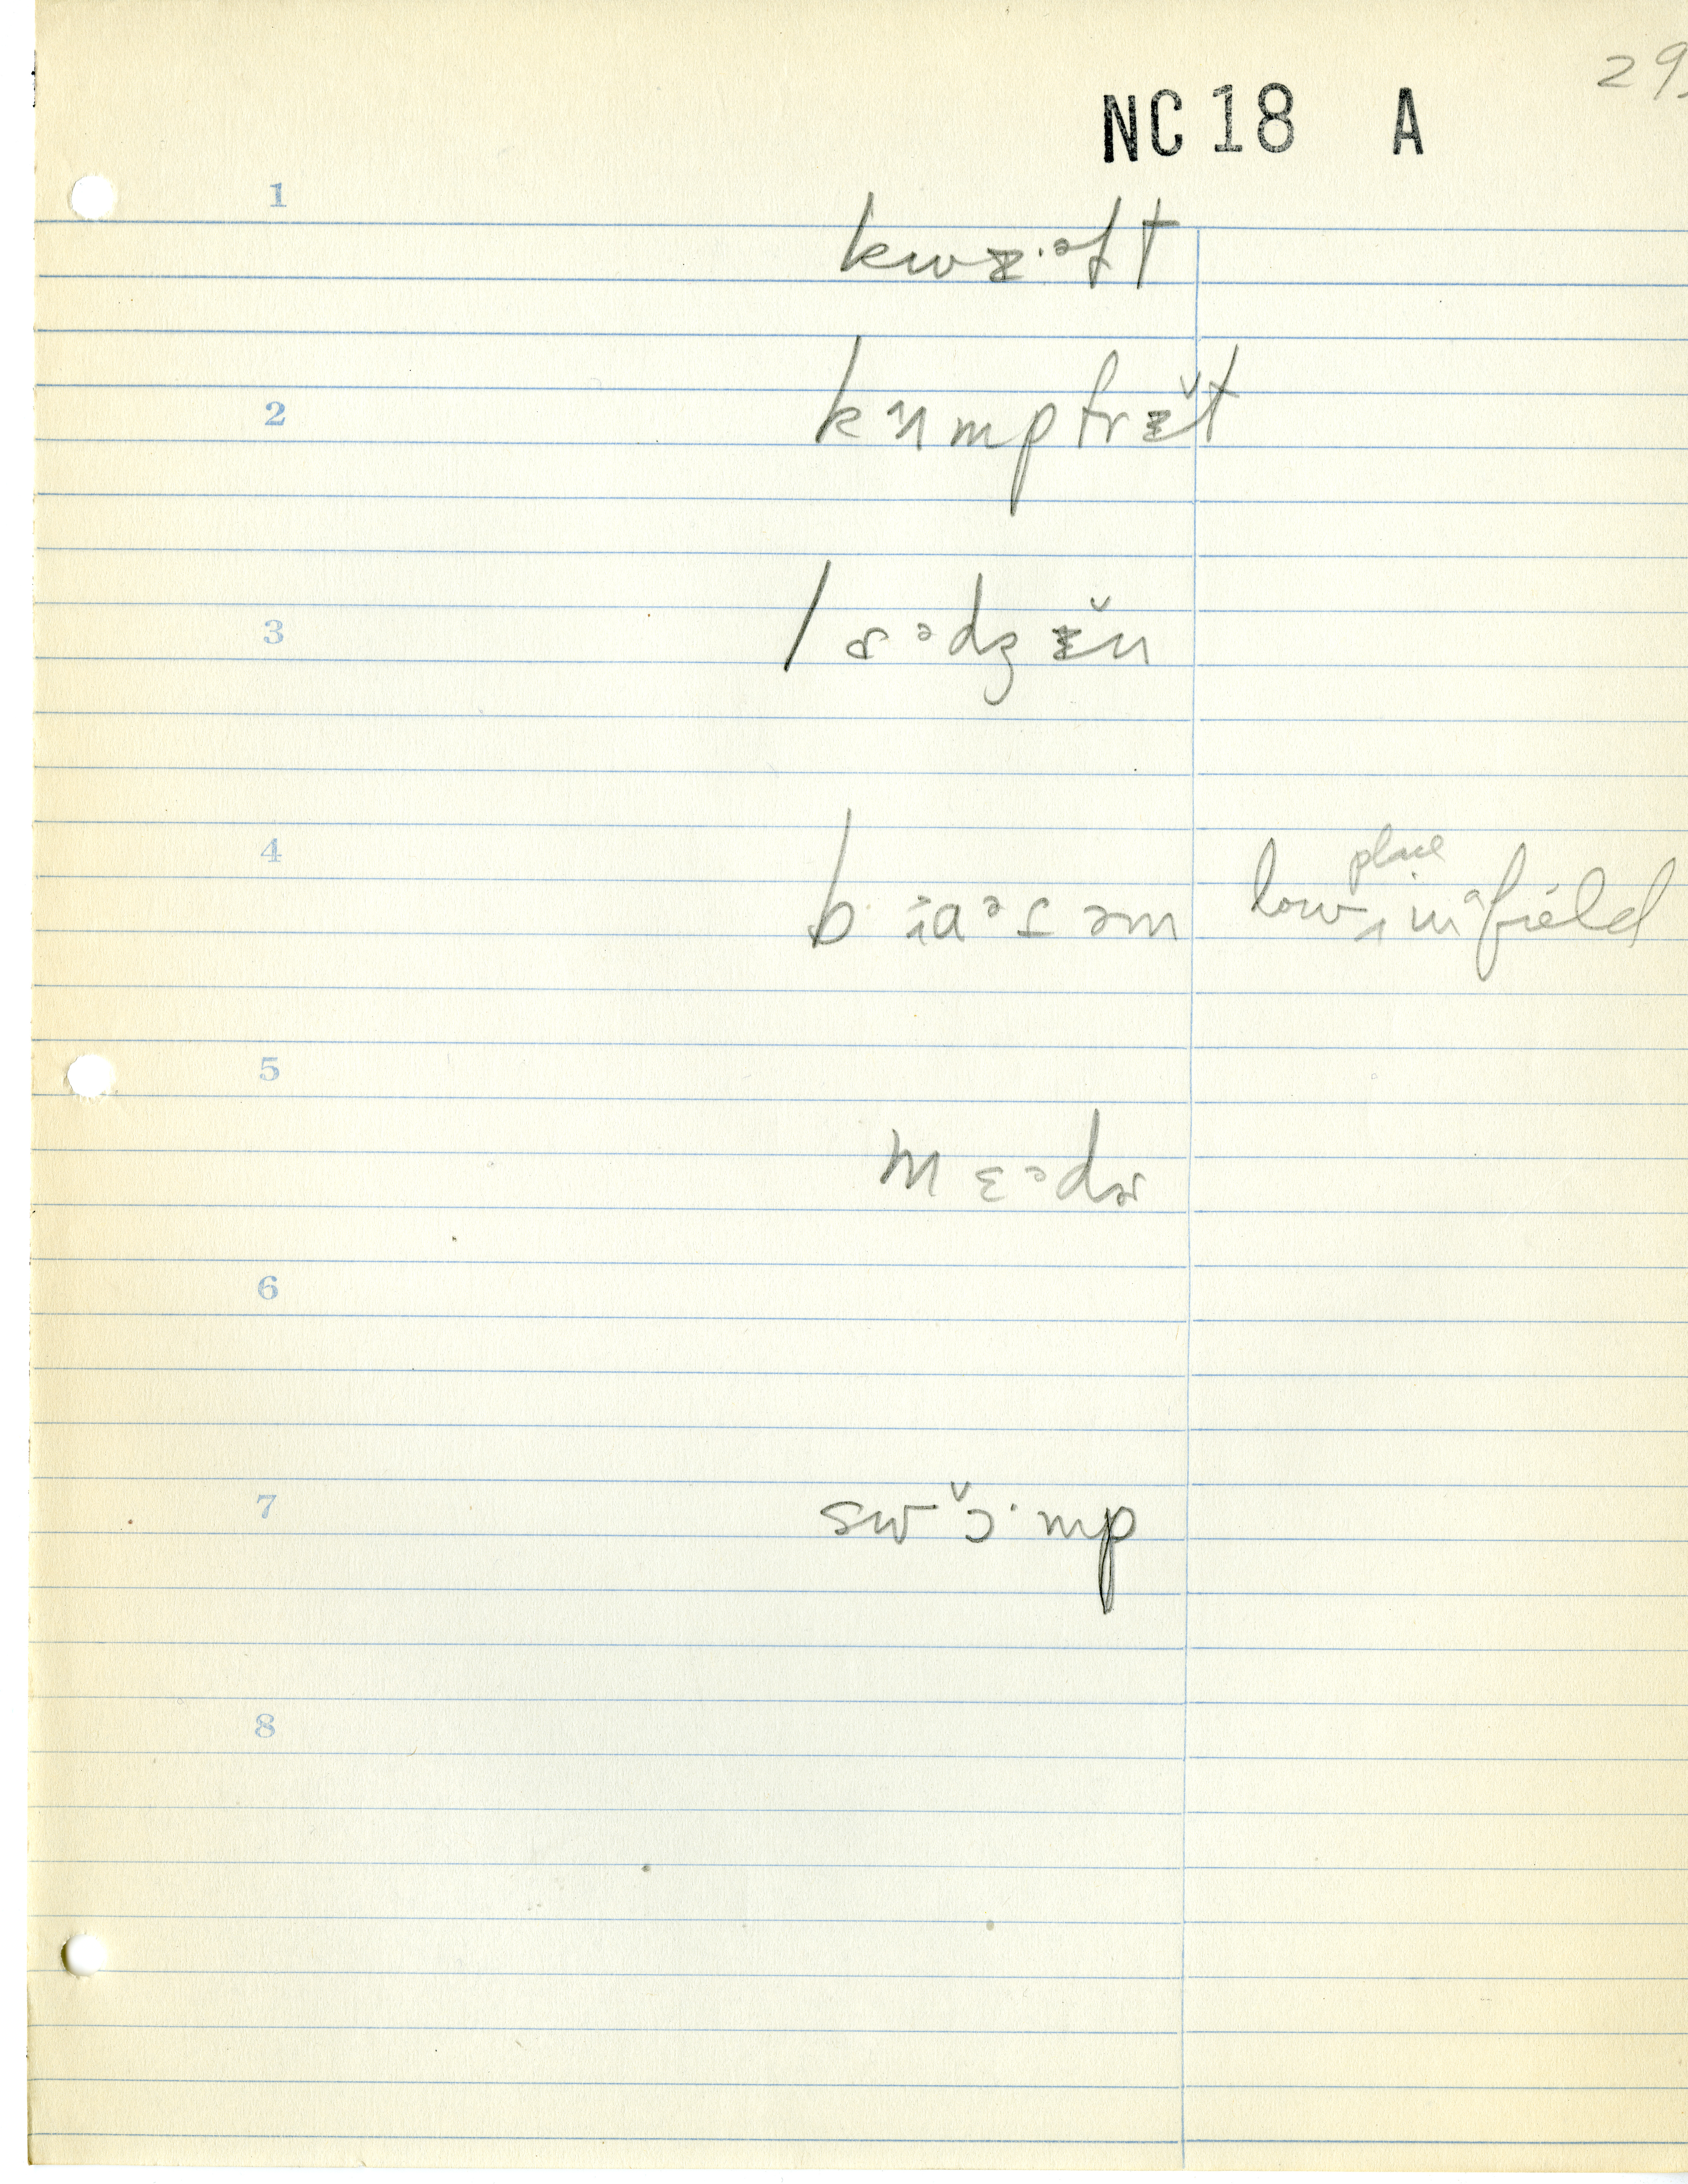 29
NC 18 A
1
kwɪ·əft
2
kʌmpfrɪ̆t
3
lɚədzɪ̆n
4
bɑəʈəm low place in a field
5
mɛədɚ
6
7
swɔ̆·mp
8